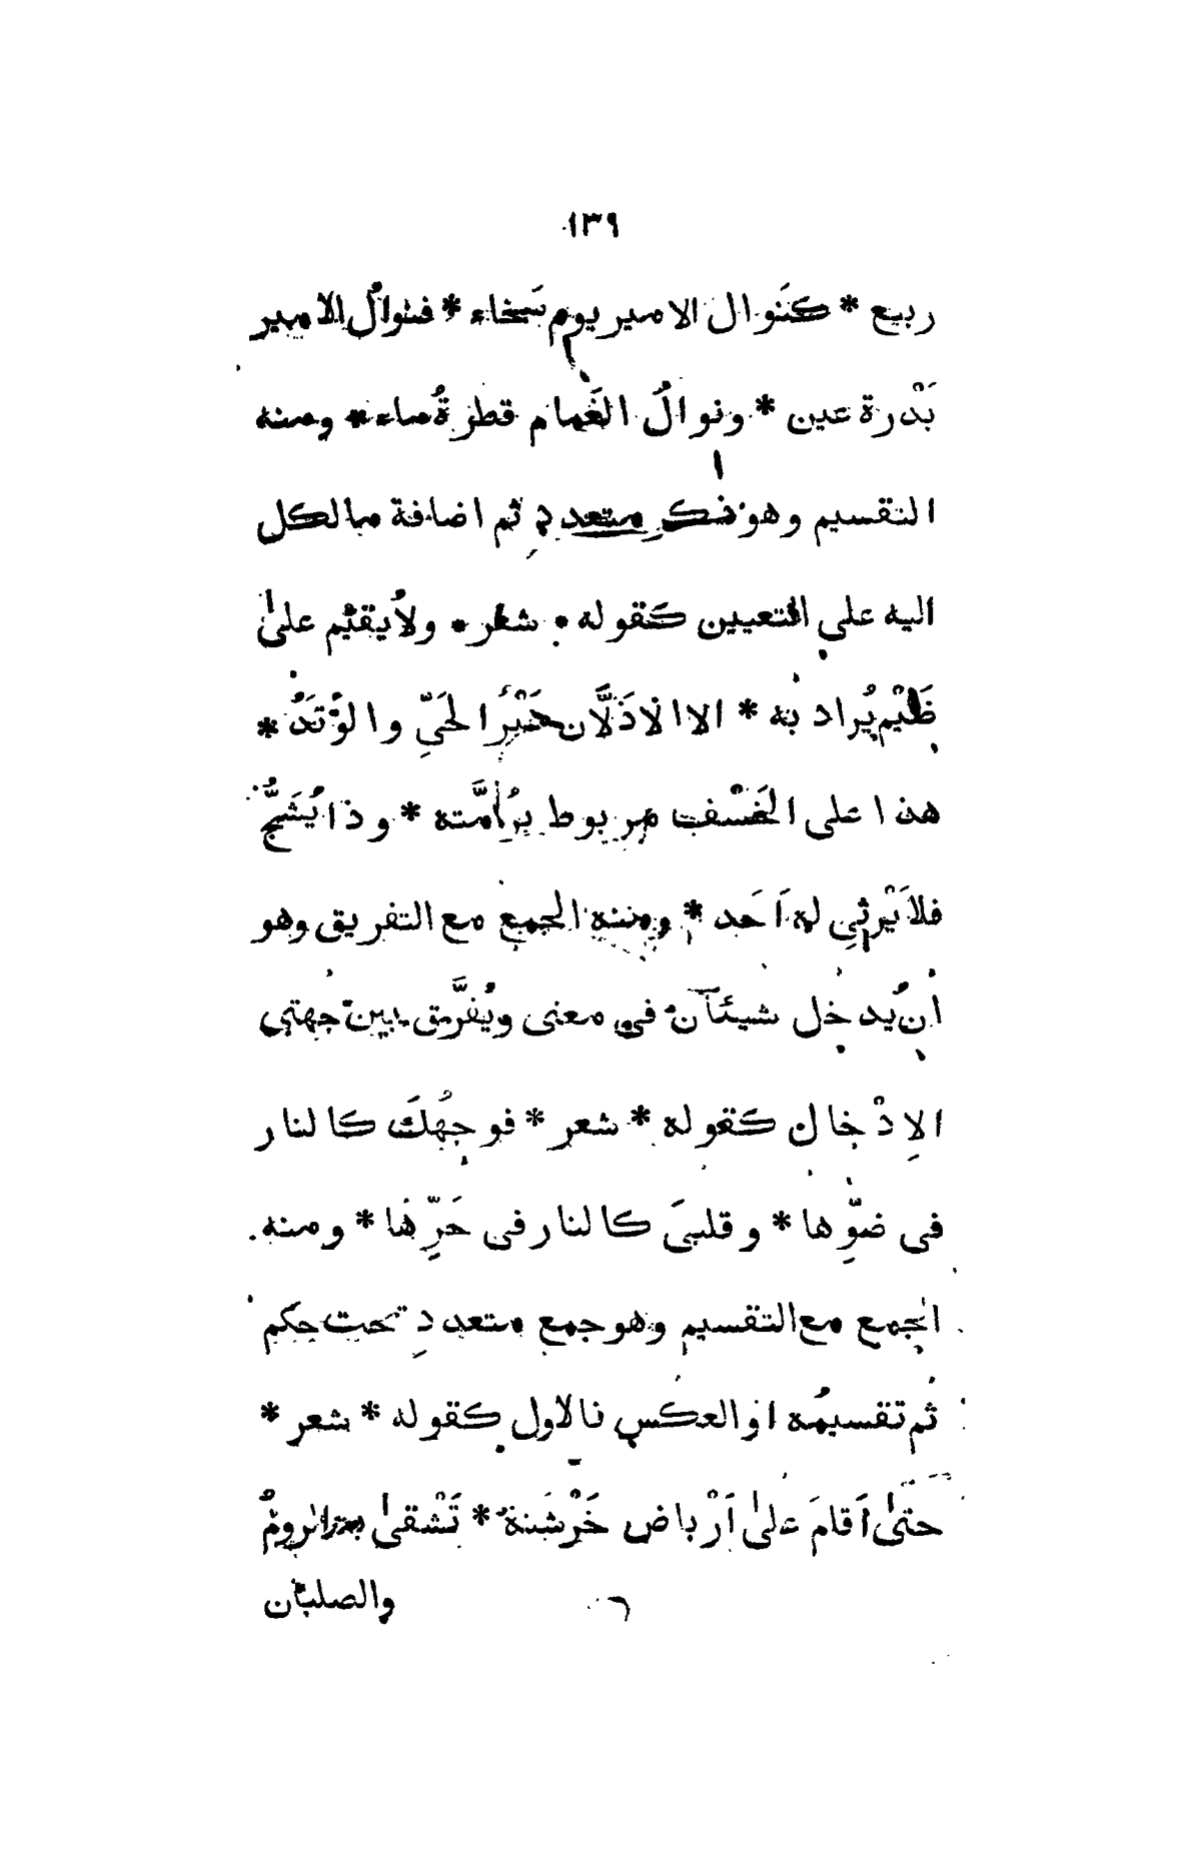 ١٣٩
ربيع * كنَوال الامير يوم سَخاء * فنوالُ الامير
بَدْرة عين * ونوالُ الغَمام قطرةُ ماء * ومنه
التقسيم وهو ذكر متعدد ثم اضافة ما لكل
اليه على التعيين كقوله * شعر * ولا يُقيم على
ضَيْم يُراد به * الا الاذَلَّان عَيْرُ الحَيِّ والوَتَدُ *
هذا على الخَسْف مربوط برُمَّته * وذا يُشَجُّ
فلا يَرْثِي له اَحَد * ومنه الجمع مع التفريق وهو
اَن يُدخل شيئآن في معنى ويُفرَّق بين جهتي
الاِدْخال كقوله * شعر * فوجهُكَ كالنار
في ضوّها * وقلبيَ كالنار في حَرِّها * ومنه
الجمع مع التقسيم وهو جمع متعدد تحت حكم
ثم تقسيمُه او العكس فالاول كقوله * شعر *
حتىٰ اَقامَ علىٰ اَرْباض خَرْشَنة * تَشْقىٰ به الرومُ
٦ والصلبان